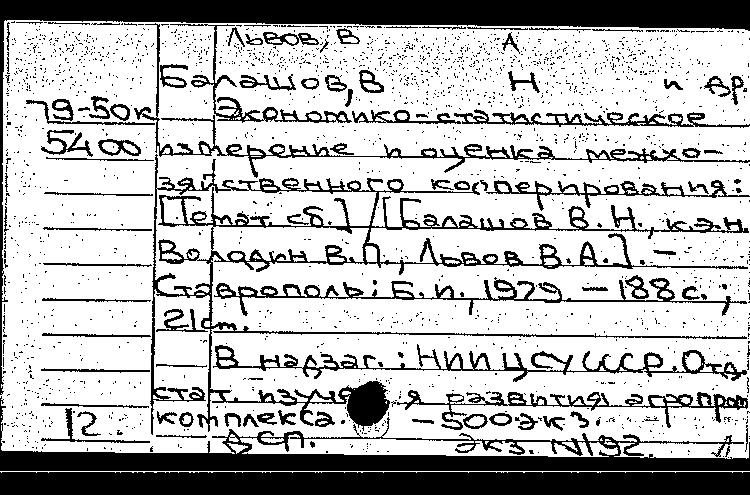 Львов, В А
Балашов, В Н и др.
79-50к Экономико-статистическое
5400 измерение и оценка межхо-
зяйственного кооперирования:
[Темат. сб.] / [Балашов В. Н., к.э.н.
Володин В.П., Львов В.А.]. -
Ставрополь: Б. и., 1979. - 188 с. ;
21 см.
В надзаг. : НИИ ЦСУ СССР. Отд.
стат. развития агропром
12. комплекса. - 500 экз.
ДСП. экз. N192.